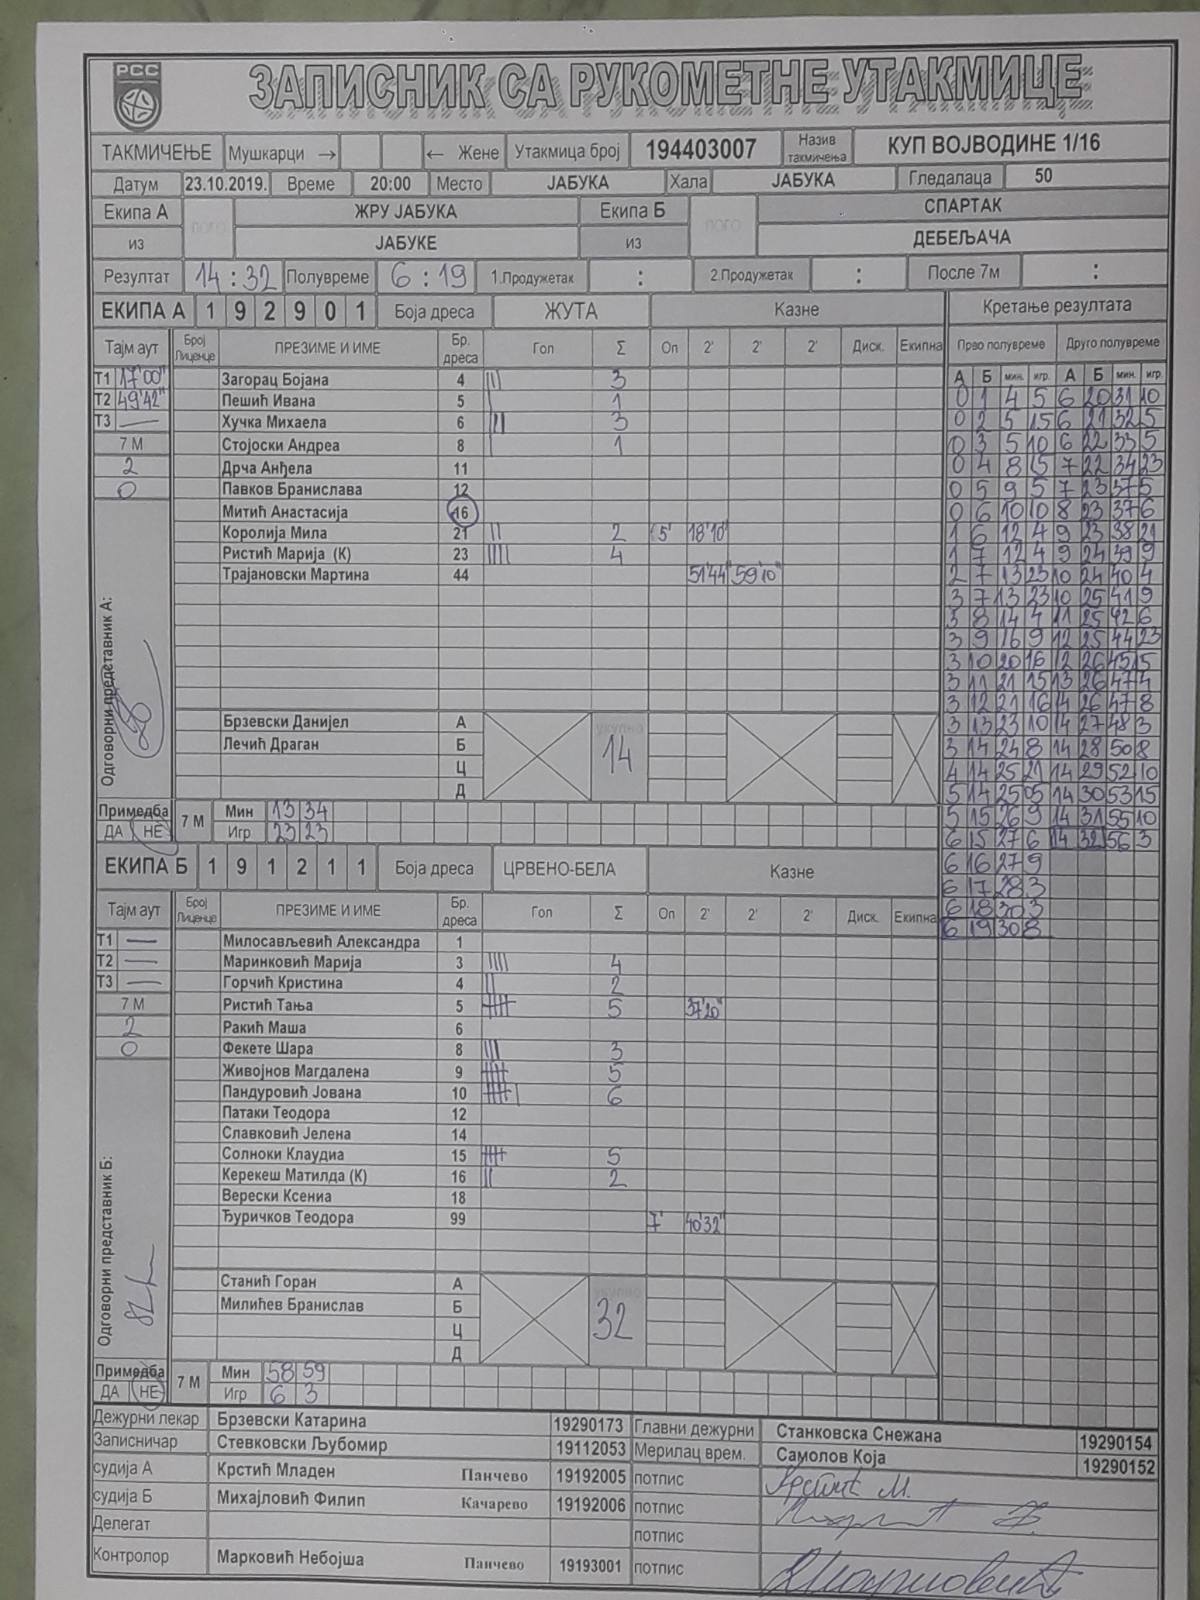 РСС
ЗАПИСНИК СА РУКОМЕТНЕ УТАКМИЦЕ
ТАКМИЧЕЊЕ Мушкарци → ← Жене Утакмица број 194403007 Назив такмичења КУП ВОЈВОДИНЕ 1/16
Датум 23.10.2019. Време 20:00 Место ЈАБУКА Хала ЈАБУКА Гледалаца 50
Екипа А ЖРУ ЈАБУКА Екипа Б СПАРТАК
из ЈАБУКЕ из ДЕБЕЉАЧА
Резултат 14 : 32 Полувреме 6 : 19 1.Продужетак : 2.Продужетак : После 7м :
ЕКИПА А 1 9 2 9 0 1 Боја дреса ЖУТА Казне Кретање резултата
Тајм аут Број Лиценце ПРЕЗИМЕ И ИМЕ Бр. дреса Гол Σ Оп 2' 2' 2' Диск. Екипна Прво полувреме Друго полувреме
А Б мин. игр. А Б мин. игр.
Т1 17'00" Загорац Бојана 4 ||| 3
Т2 49'42" Пешић Ивана 5 | 1
Т3 — Хучка Михаела 6 ||| 3
7 М Стојоски Андреа 8 | 1
2 Дрча Анђела 11
0 Павков Бранислава 12
Митић Анастасија 16
Королија Мила 21 || 2 15' 18'10"
Ристић Марија (К) 23 |||| 4
Трајановски Мартина 44 51'44" 59'10"
0 1 4 5 6 20 31 10
0 2 5 15 6 21 32 5
0 3 5 10 6 22 33 5
0 4 8 15 7 22 34 23
0 5 9 5 7 23 37 5
0 6 10 10 8 23 37 6
1 6 12 4 9 23 38 21
1 7 12 4 9 24 39 9
2 7 13 23 10 24 40 4
3 7 13 23 10 25 41 9
3 8 14 4 11 25 42 6
3 9 16 9 12 25 44 23
3 10 20 16 12 26 45 15
3 11 21 15 13 26 47 4
3 12 21 16 14 26 47 8
3 13 23 10 14 27 48 3
3 14 24 8 14 28 50 8
4 14 25 21 14 29 52 10
5 14 25 05 14 30 53 15
5 15 26 9 14 31 55 10
6 15 27 6 14 32 56 3
6 16 27 9
6 17 28 3
6 18 30 3
6 19 30 8
Одговорни представник А:
Брзевски Данијел А укупно 14
Лечић Драган Б
Ц
Д
Примедба 7 М Мин 13 34
ДА НЕ Игр 23 23
ЕКИПА Б 1 9 1 2 1 1 Боја дреса ЦРВЕНО-БЕЛА Казне
Тајм аут Број Лиценце ПРЕЗИМЕ И ИМЕ Бр. дреса Гол Σ Оп 2' 2' 2' Диск. Екипна
Т1 — Милосављевић Александра 1
Т2 — Маринковић Марија 3 |||| 4
Т3 — Горчић Кристина 4 || 2
7 М Ристић Тања 5 5 37'20"
2 Ракић Маша 6
0 Фекете Шара 8 ||| 3
Живојнов Магдалена 9 5
Пандуровић Јована 10 6
Патаки Теодора 12
Славковић Јелена 14
Солноки Клаудиа 15 5
Керекеш Матилда (К) 16 || 2
Верески Ксениа 18
Ђуричков Теодора 99 7' 40'32"
Одговорни представник Б:
Станић Горан А укупно 32
Милићев Бранислав Б
Ц
Д
Примедба 7 М Мин 58 59
ДА НЕ Игр 6 3
Дежурни лекар Брзевски Катарина 19290173 Главни дежурни Станковска Снежана 19290154
Записничар Стевковски Љубомир 19112053 Мерилац врем. Самолов Које 19290152
судија А Крстић Младен Панчево 19192005 потпис Крстић М.
судија Б Михајловић Филип Качарево 19192006 потпис
Делегат потпис
Контролор Марковић Небојша Панчево 19193001 потпис